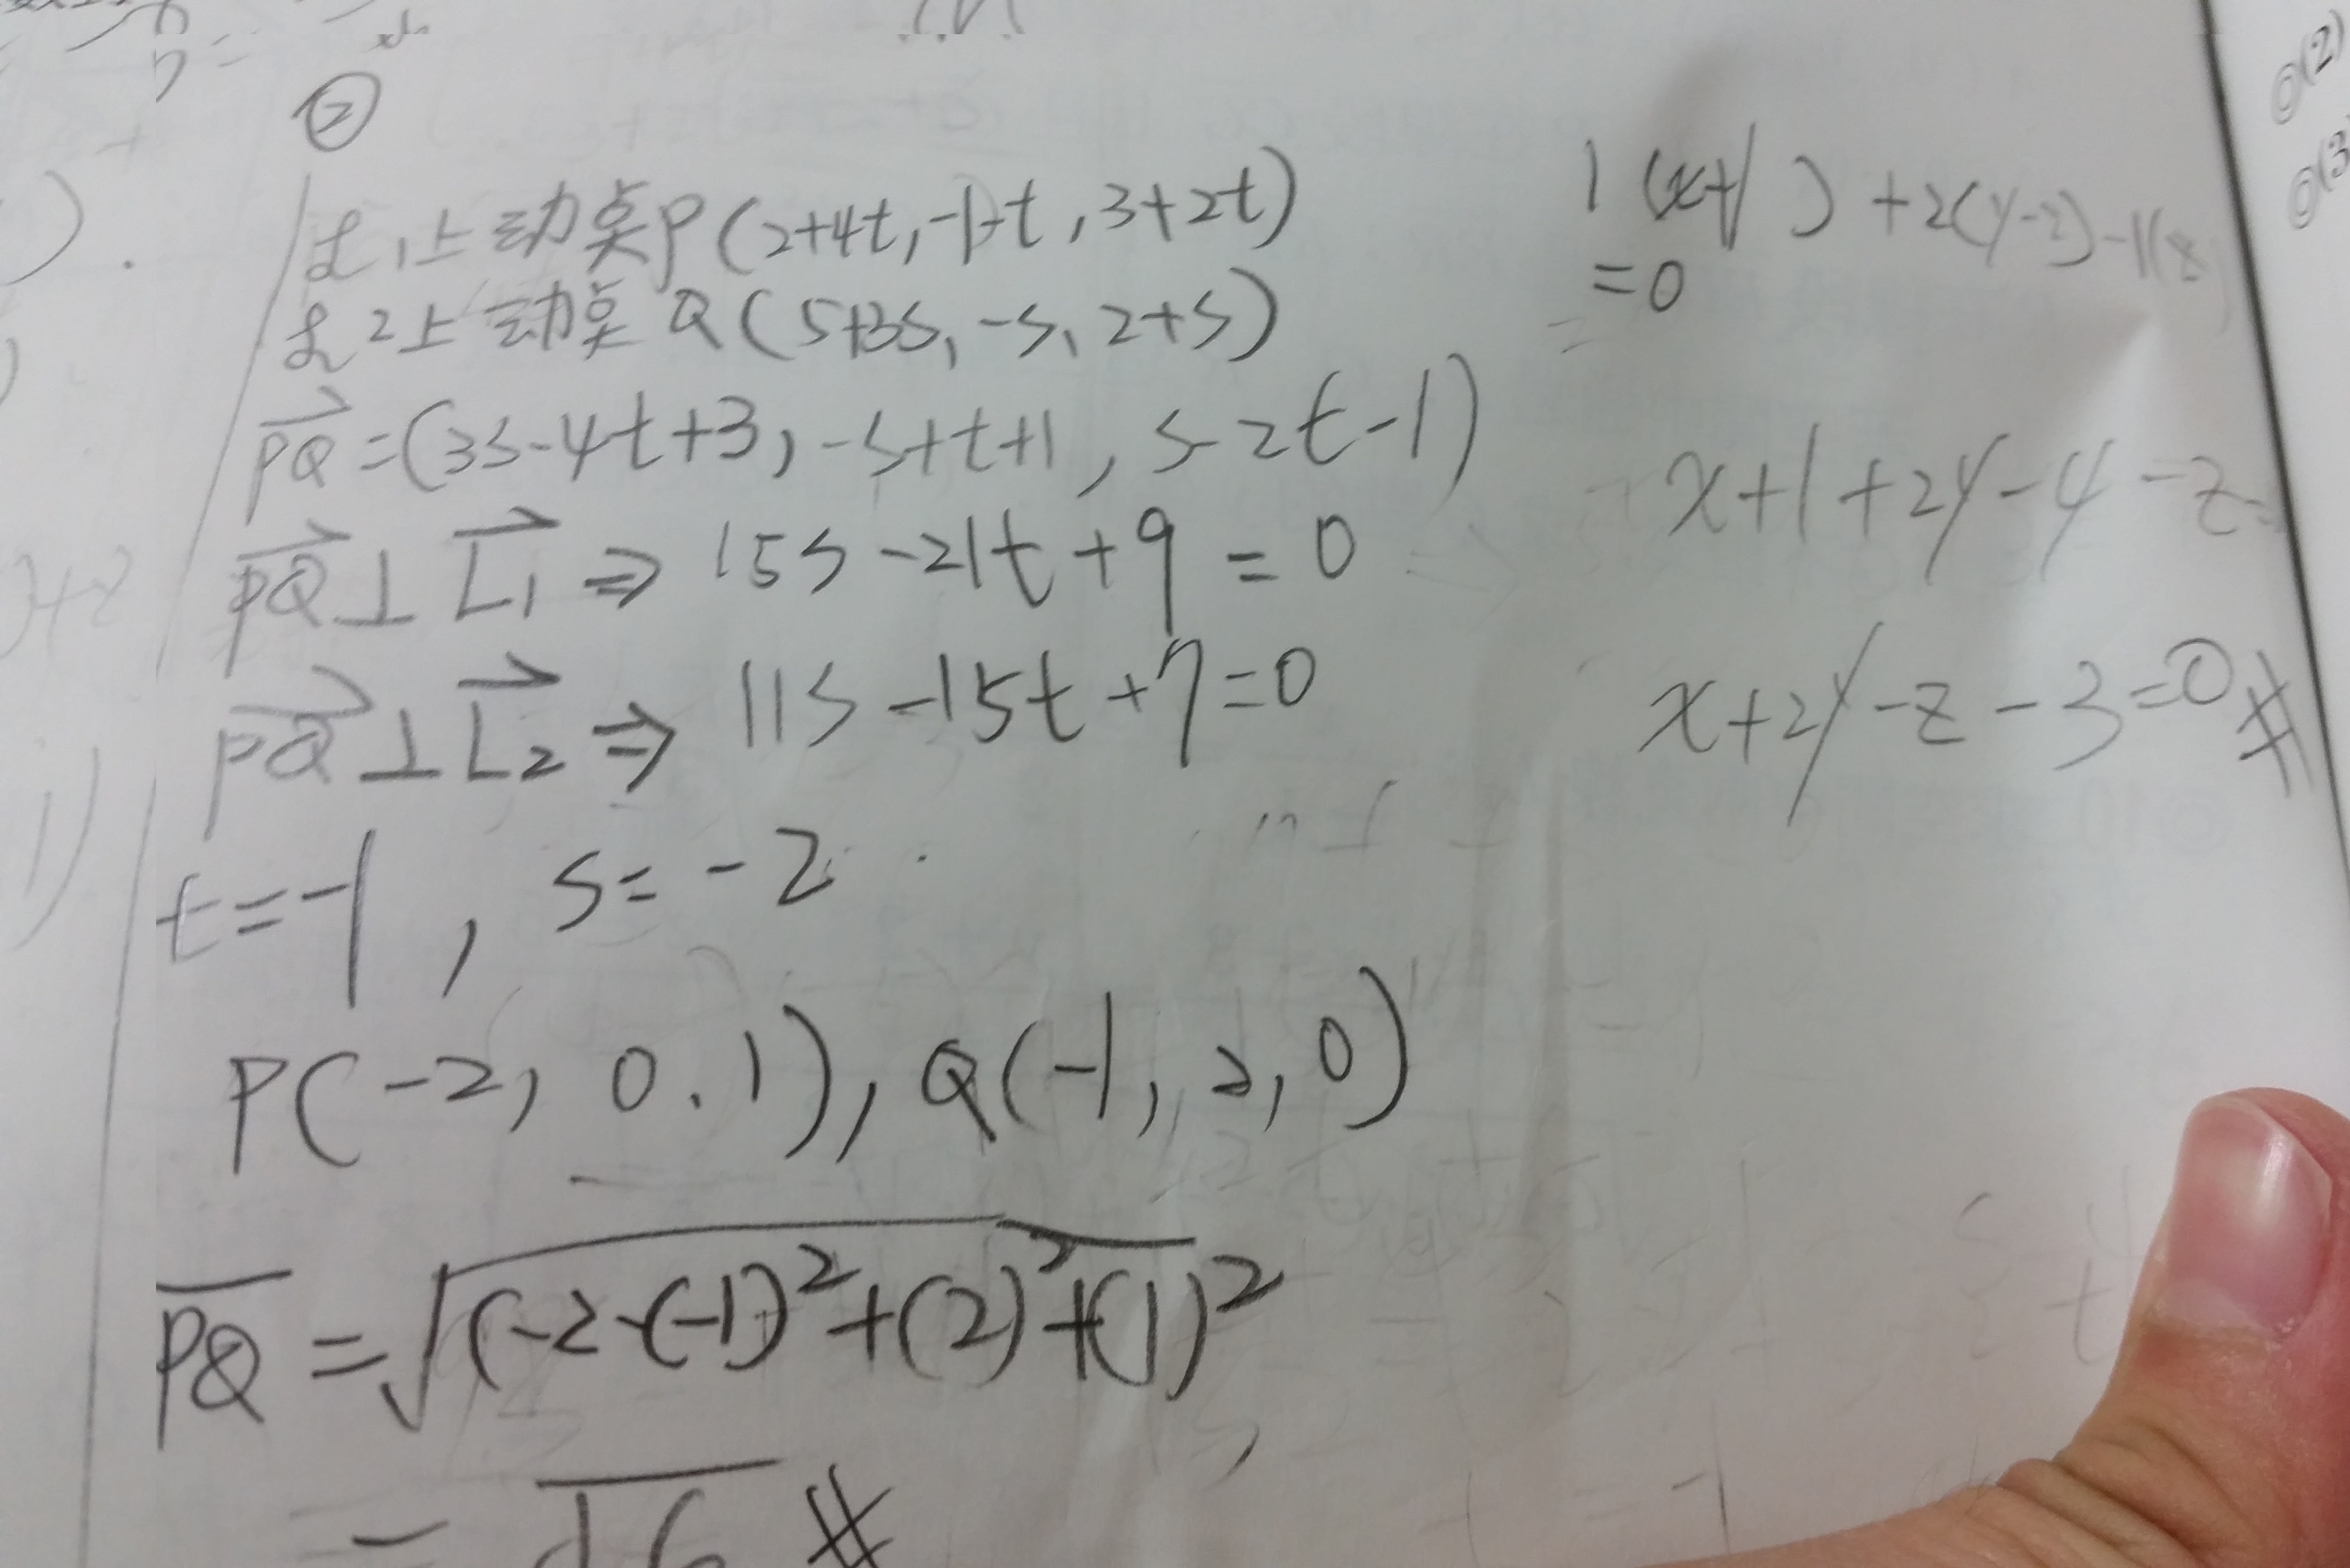 ②
L1上动点P(2+4t,-1-t,3+2t)
L2上动点Q(5+3s,-s,2+s)
PQ=(3s-4t+3,-s+t+1,s-2t-1)
PQ⊥L1⇒15s-21t+9=0
PQ⊥L2⇒11s-15t+7=0
t=-1,s=-2
P(-2,0.1),Q(-1,2,0)
PQ=√(-2-(-1))²+(2)²+(1)²
=√6 #
1(x+1)+2(y-2)-1(z
=0
x+1+2y-4-z=
x+2y-z-3=0#
(2)
(3